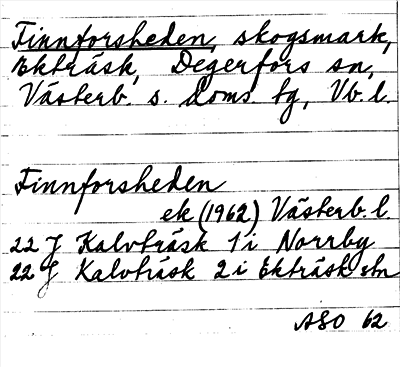 Finnforsheden, skogsmark,
Ekträsk, Degerfors sn,
Västerb. s. doms. tg, Vb. l.
Finnforsheden
ek (1962) Västerb. l
22 J Kalvträsk 1 i Norrby
22 J Kalvträsk 2 i Ekträsk stn
ASO 62